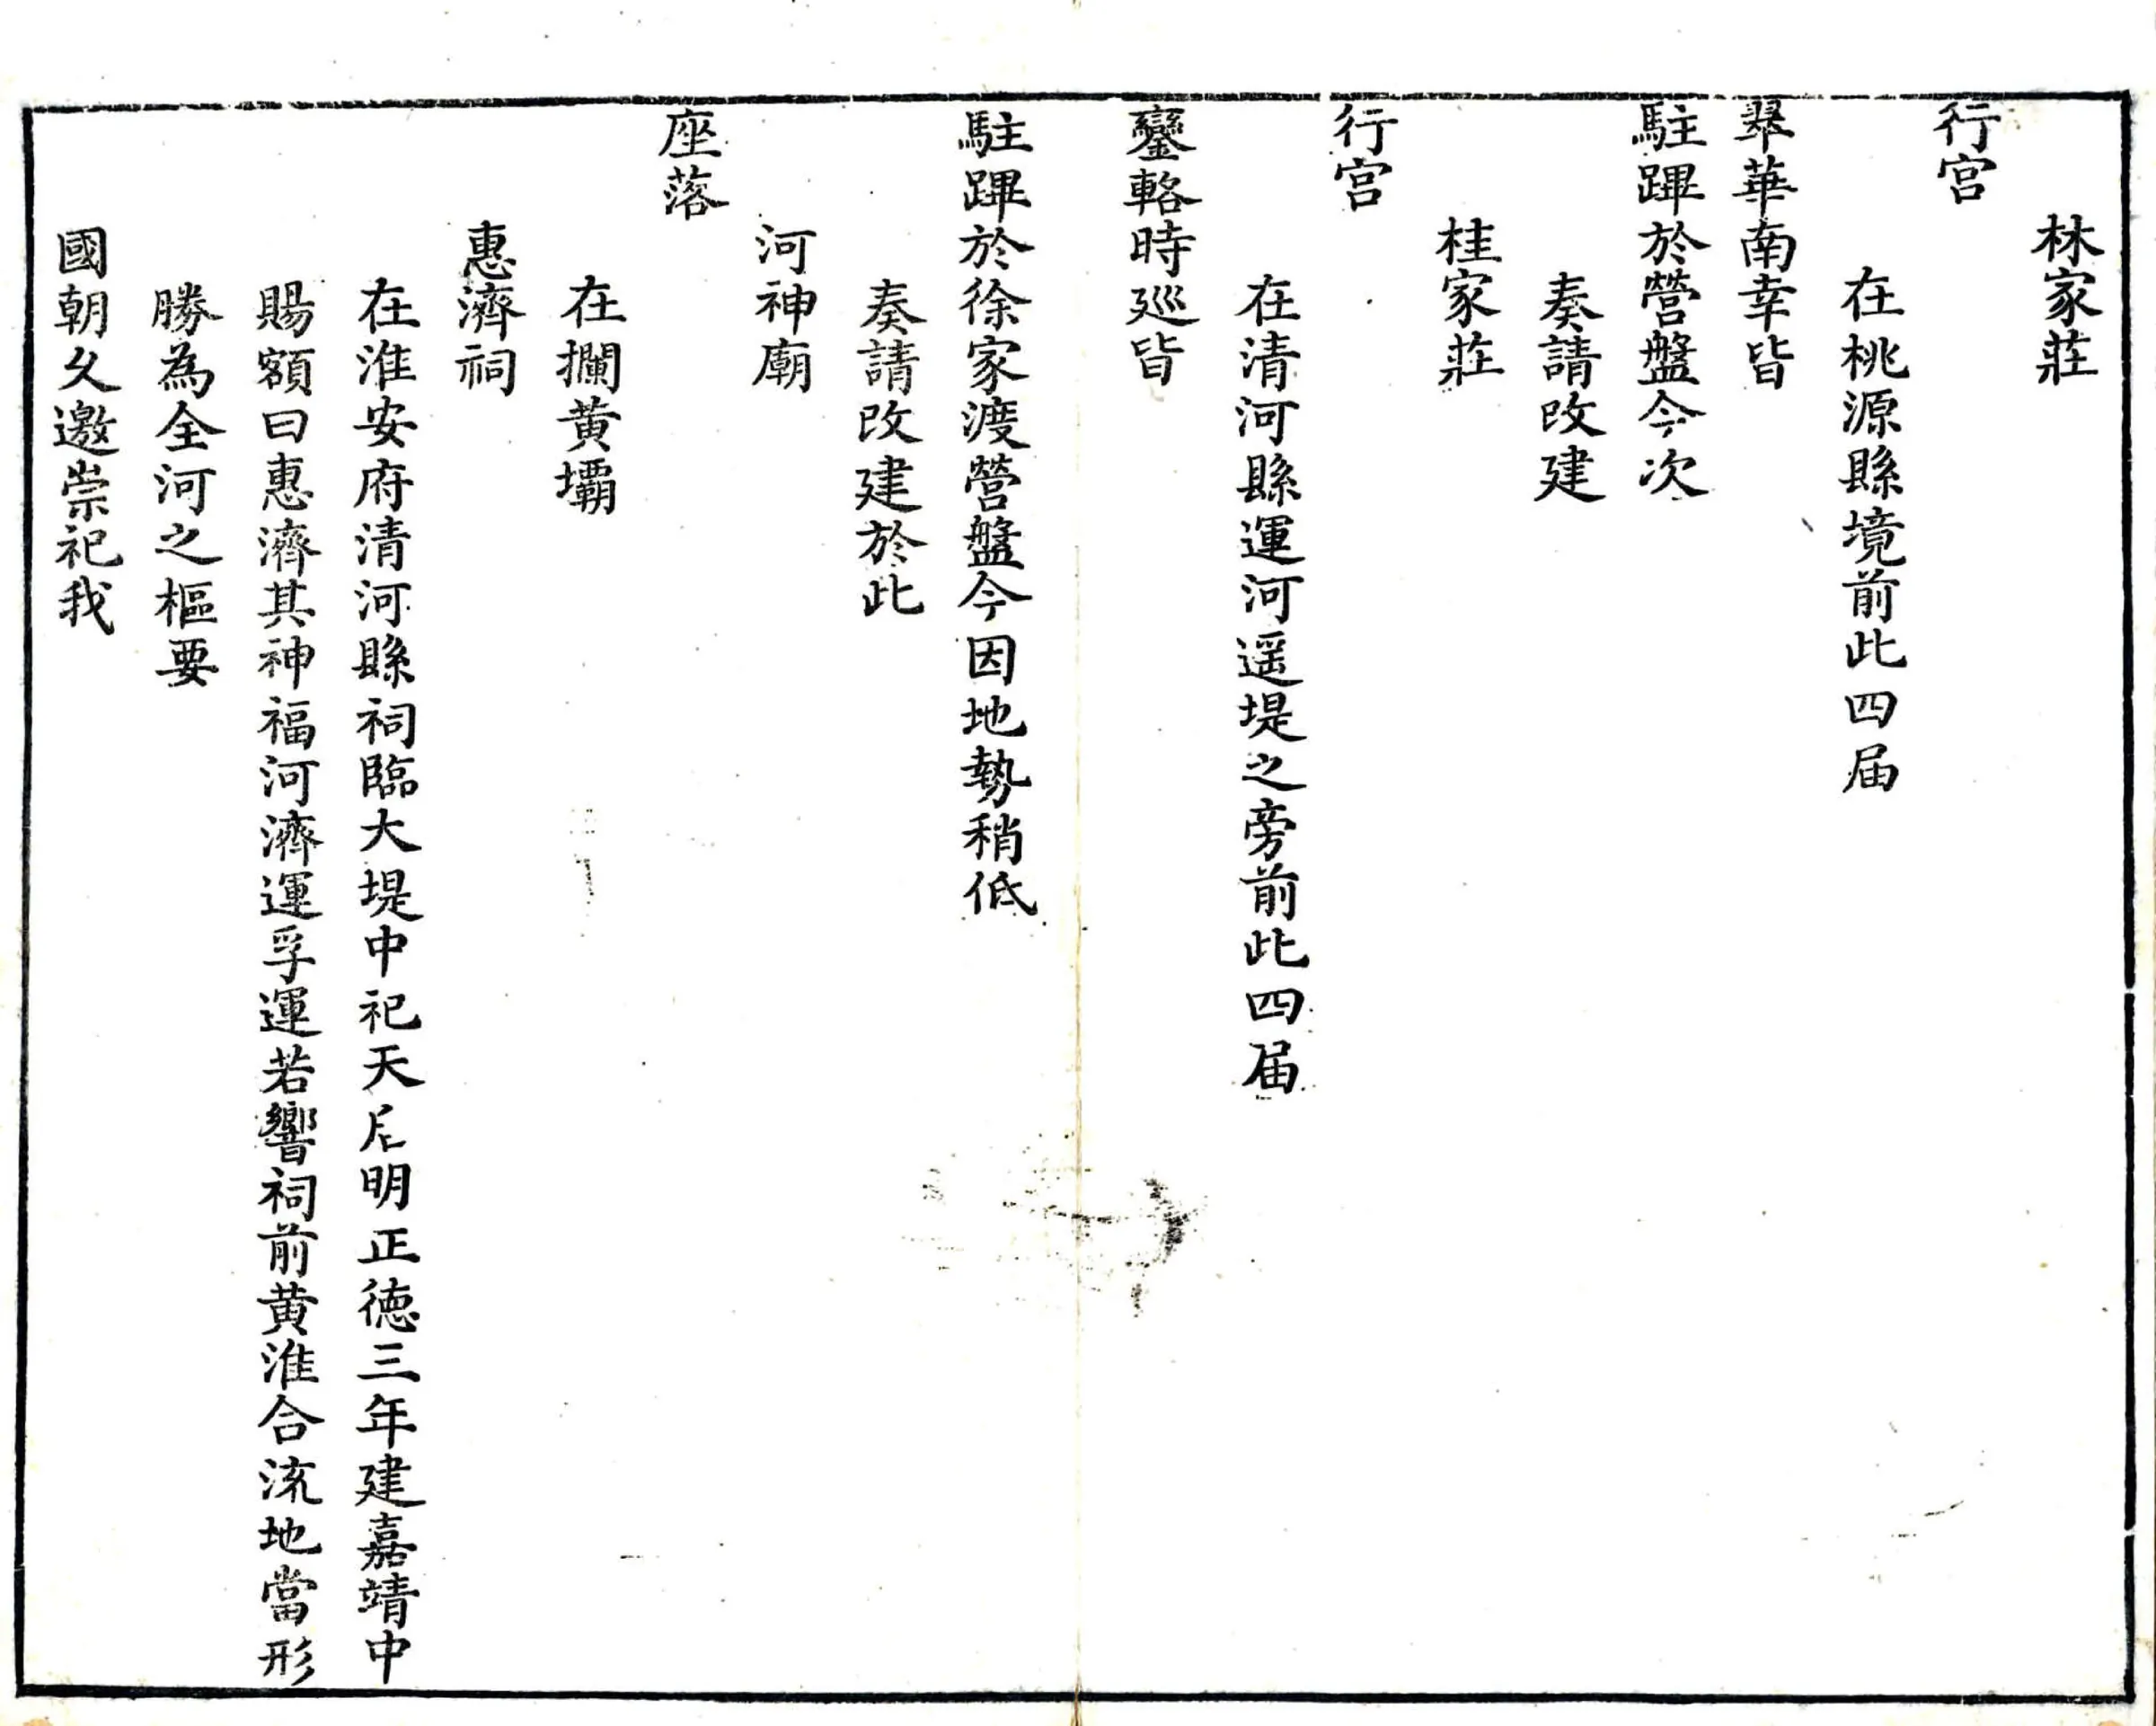 林家莊
行宫
在桃源縣境前此四届
翠華南幸皆
駐蹕於營盤今次
奏請改建
桂家莊
行宫
在清河縣運河遥堤之旁前此四届
鑾輅時廵皆
駐蹕於徐家渡營盤今因地勢稍低
奏請改建於此
河神廟
座落
在攔黄壩
惠濟祠
在淮安府清河縣祠臨大堤中祀天后明正徳三年建嘉靖中
賜額曰惠濟其神福河濟運孚運若響祠前黄淮合流地當形
勝為全河之樞要
國朝久邀崇祀我